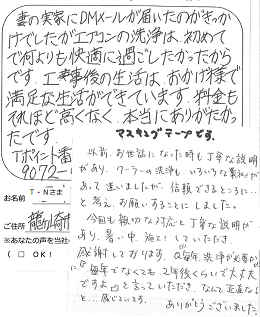 妻の実家にDMメールが届いたのがきっか
けでしたがエアコンの洗浄は、初めて
で何よりも快適に過ごしたかったから
です。工事後の生活は、おかげ様で
満足な生活ができています。料金も
それほど高くなく、本当にありがたかっ
たです
Tポイント番
9072-
マスキングテープです。
お名前
T・Nさま
ご住所
龍ケ崎市
※あなたの声を当社
(□ OK!
以前、お世話になった時も丁寧な説明
があり、クーラーの洗浄も、いろいろな業者が
あって迷いましたが、信頼できるところに…
と考え、お願いすることにしました。
今回も親切な対応と丁寧な説明が
あり、暑い中、施工していただき、
感謝しております。Q毎年、洗浄が必要か
毎年でなくても、2年後くらいで大丈夫
ですよ と言っていただき、なんて正直な
と…感じています。
ありがとうございました。